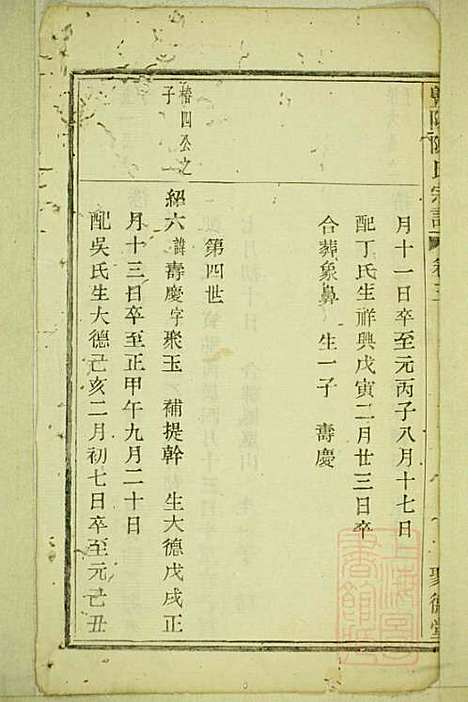 陳氏宗譜
卷三
聚德堂
月十一日卒至元丙子八月十七日
配丁氏生祥興戊寅二月廿三日卒
合葬象鼻 生一子 壽慶
第四世
椿四公之
子
紹六諱壽慶字聚玉 補提幹 生大德戊戌正
月十三日卒至正甲午九月二十日
配吳氏生大德己亥二月初七日卒至元己丑